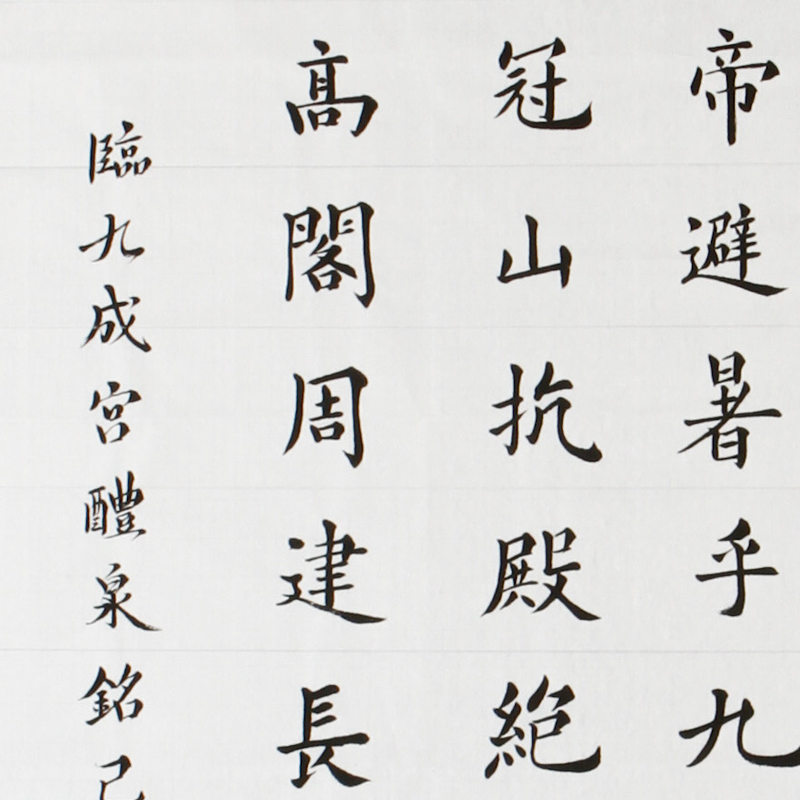 帝避暑乎九
冠山抗殿絶
高閣周建長
臨九成宮醴泉銘己